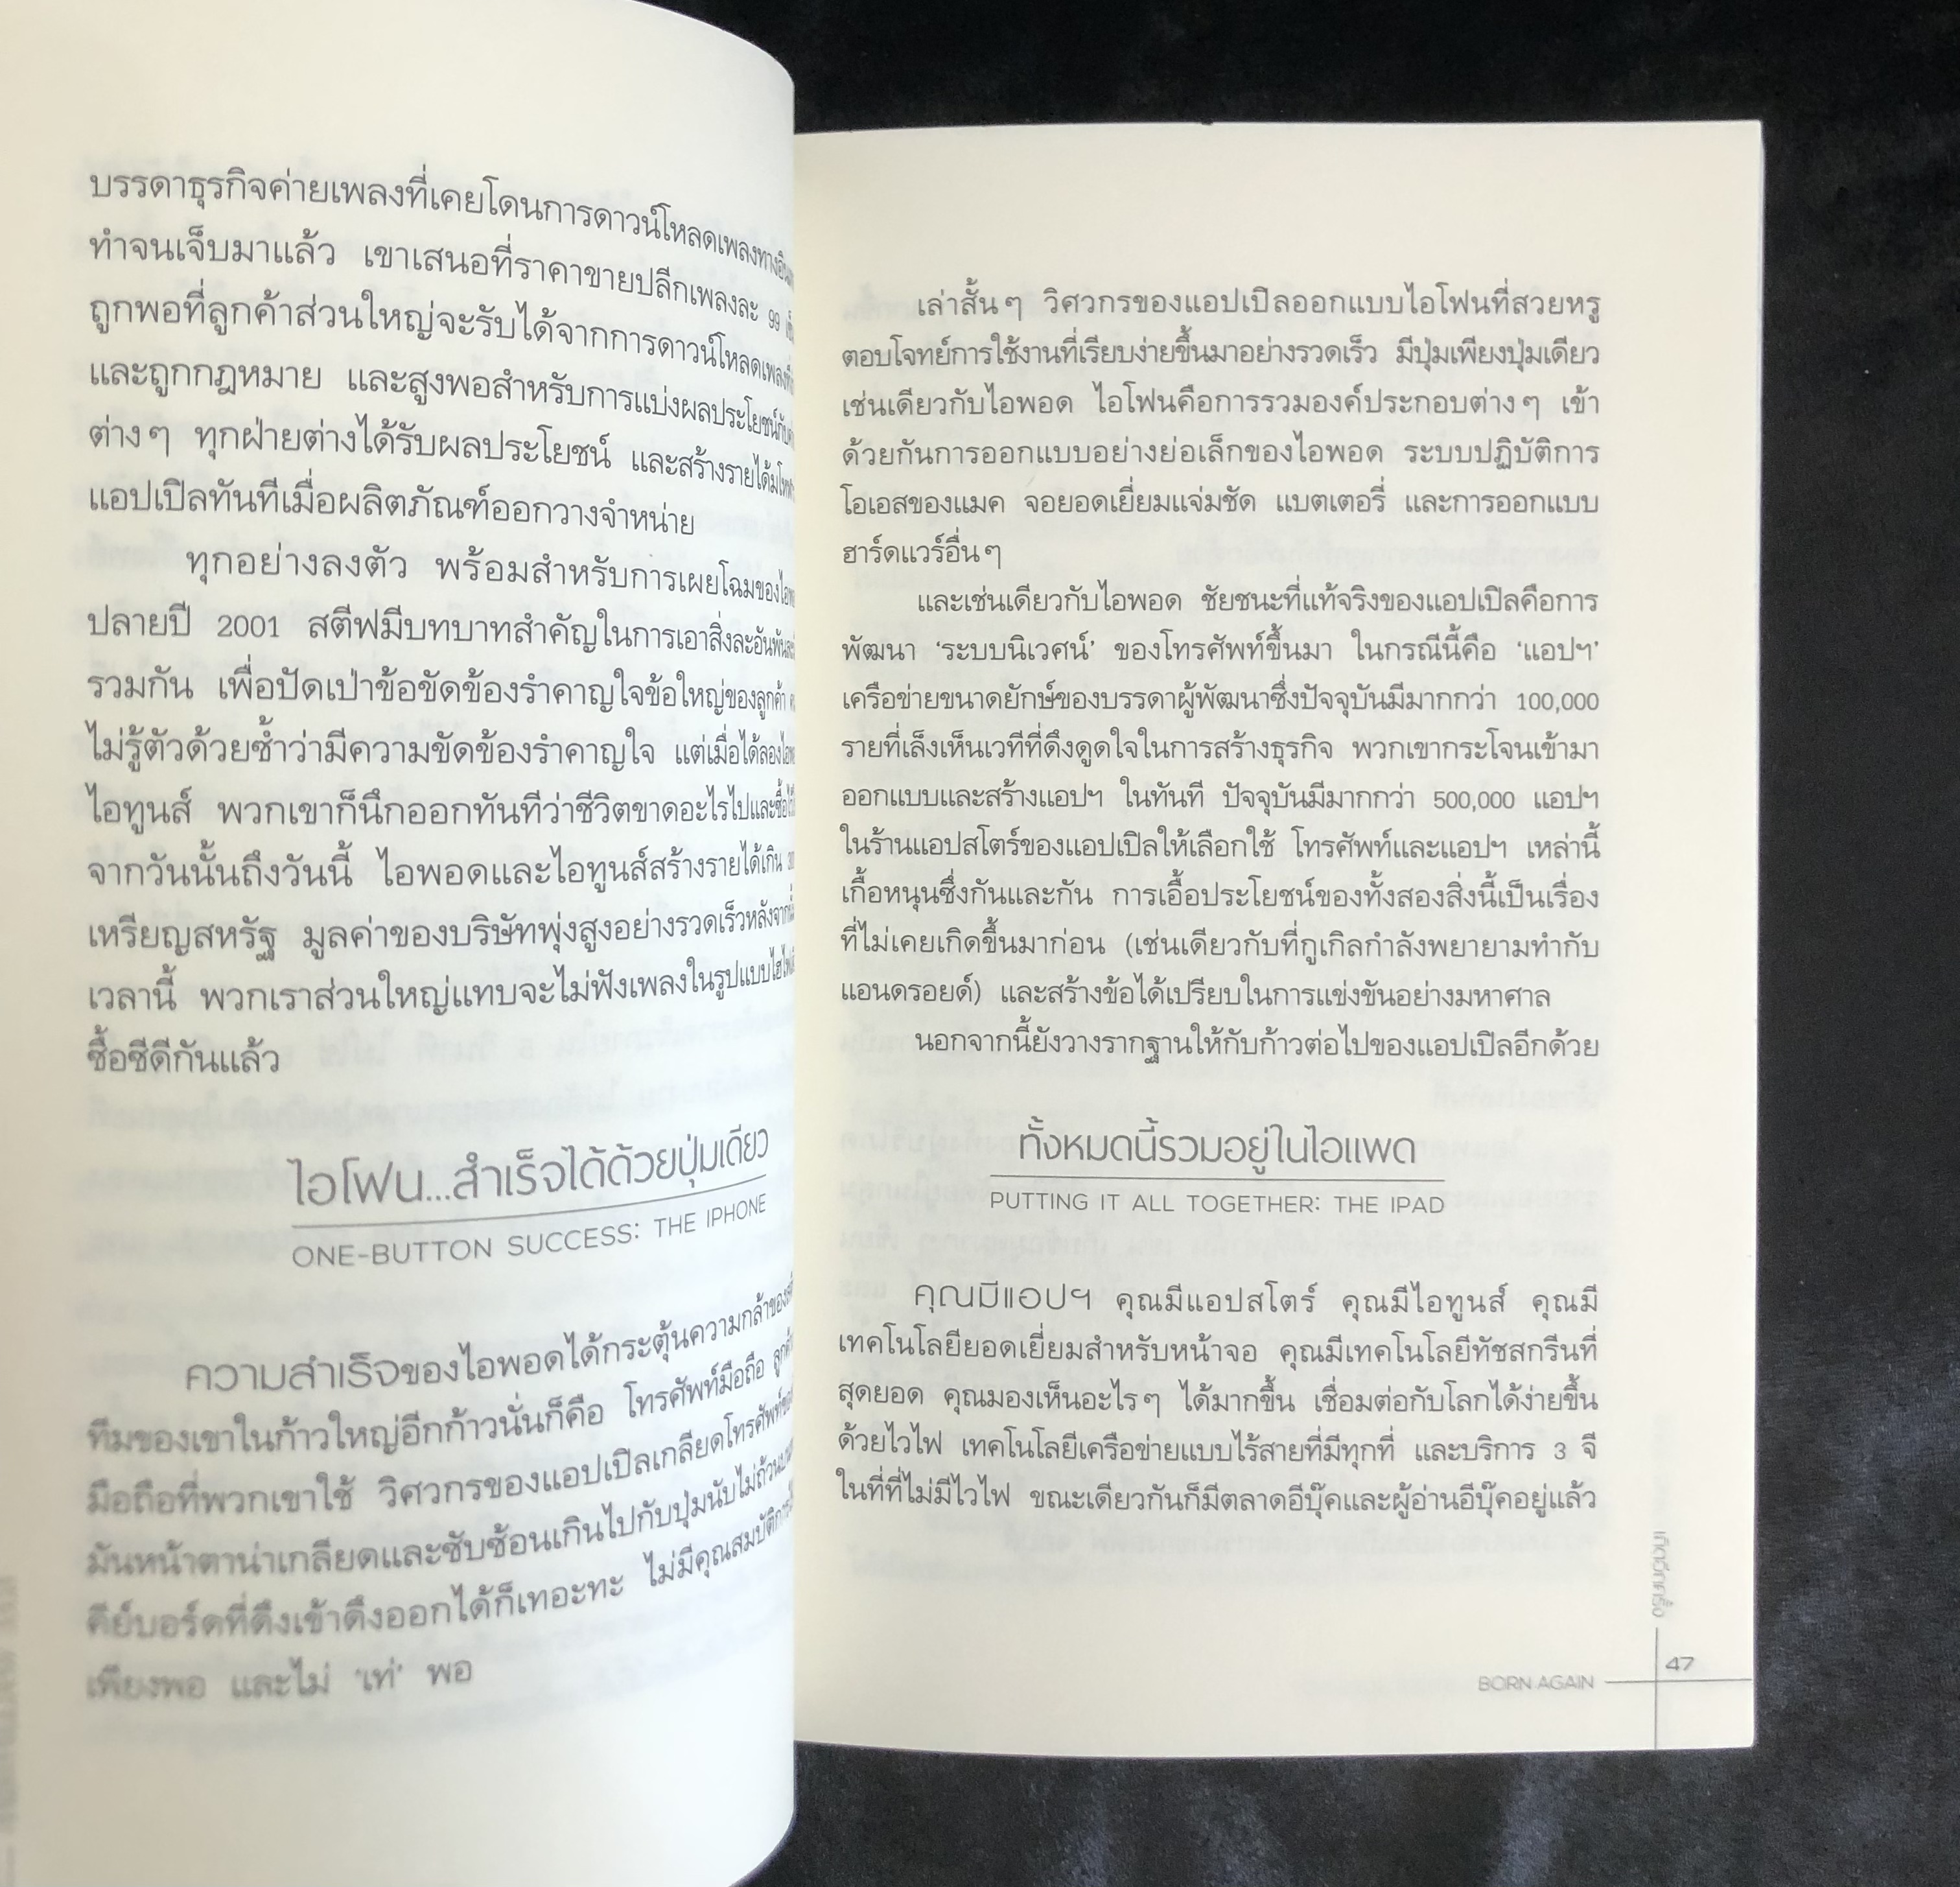 บรรดาธุรกิจค่ายเพลงที่เคยโดนการดาวน์โหลดเพลงทาง
ทำจนเจ็บมาแล้ว เขาเสนอที่ราคาขายปลีกเพลงละ 99
ถูกพอที่ลูกค้าส่วนใหญ่จะรับได้จากการดาวน์โหลดเพลง
และถูกกฎหมาย และสูงพอสำหรับการแบ่งผลประโยชน์กับ
ต่างๆ ทุกฝ่ายต่างได้รับผลประโยชน์ และสร้างรายได้
แอปเปิลทันทีเมื่อผลิตภัณฑ์ออกวางจำหน่าย
ทุกอย่างลงตัว พร้อมสำหรับการเผยโฉมของ
ปลายปี 2001 สตีฟมีบทบาทสำคัญในการเอาสิ่งละอันพันละ
รวมกัน เพื่อปัดเป่าข้อขัดข้องรำคาญใจข้อใหญ่ของลูกค้า
ไม่รู้ตัวด้วยซ้ำว่ามีความขัดข้องรำคาญใจ แต่เมื่อได้ลอง
ไอทูนส์ พวกเขาก็นึกออกทันทีว่าชีวิตขาดอะไรไปและซื้อ
จากวันนั้นถึงวันนี้ ไอพอดและไอทูนส์สร้างรายได้เกิน
เหรียญสหรัฐ มูลค่าของบริษัทพุ่งสูงอย่างรวดเร็วหลังจาก
เวลานี้ พวกเราส่วนใหญ่แทบจะไม่ฟังเพลงในรูปแบบ
ซื้อซีดีกันแล้ว
ไอโฟน...สำเร็จได้ด้วยปุ่มเดียว
ONE-BUTTON SUCCESS: THE IPHONE
ความสำเร็จของไอพอดได้กระตุ้นความกล้าของ
ทีมของเขาในก้าวใหญ่อีกก้าวนั่นก็คือ โทรศัพท์มือถือ
มือถือที่พวกเขาใช้ วิศวกรของแอปเปิลเกลียดโทรศัพท์
มันหน้าตาน่าเกลียดและซับซ้อนเกินไปกับปุ่มนับไม่ถ้วน
คีย์บอร์ดที่ดึงเข้าดึงออกได้ก็เทอะทะ ไม่มีคุณสมบัติ
เพียงพอ และไม่ 'เท่' พอ
เล่าสั้นๆ วิศวกรของแอปเปิลออกแบบไอโฟนที่สวยหรู
ตอบโจทย์การใช้งานที่เรียบง่ายขึ้นมาอย่างรวดเร็ว มีปุ่มเพียงปุ่มเดียว
เช่นเดียวกับไอพอด ไอโฟนคือการรวมองค์ประกอบต่างๆ เข้า
ด้วยกันการออกแบบอย่างย่อเล็กของไอพอด ระบบปฏิบัติการ
โอเอสของแมค จอยอดเยี่ยมแจ่มชัด แบตเตอรี่ และการออกแบบ
ฮาร์ดแวร์อื่นๆ
และเช่นเดียวกับไอพอด ชัยชนะที่แท้จริงของแอปเปิลคือการ
พัฒนา 'ระบบนิเวศน์' ของโทรศัพท์ขึ้นมา ในกรณีนี้คือ 'แอปฯ'
เครือข่ายขนาดยักษ์ของบรรดาผู้พัฒนาซึ่งปัจจุบันมีมากกว่า 100,000
รายที่เล็งเห็นเวทีที่ดึงดูดใจในการสร้างธุรกิจ พวกเขากระโจนเข้ามา
ออกแบบและสร้างแอปฯ ในทันที ปัจจุบันมีมากกว่า 500,000 แอปฯ
ในร้านแอปสโตร์ของแอปเปิลให้เลือกใช้ โทรศัพท์และแอปฯ เหล่านี้
เกื้อหนุนซึ่งกันและกัน การเอื้อประโยชน์ของทั้งสองสิ่งนี้เป็นเรื่อง
ที่ไม่เคยเกิดขึ้นมาก่อน (เช่นเดียวกับที่กูเกิลกำลังพยายามทำกับ
แอนดรอยด์) และสร้างข้อได้เปรียบในการแข่งขันอย่างมหาศาล
นอกจากนี้ยังวางรากฐานให้กับก้าวต่อไปของแอปเปิลอีกด้วย
ทั้งหมดนี้รวมอยู่ในไอแพด
PUTTING IT ALL TOGETHER: THE IPAD
คุณมีแอปฯ คุณมีแอปสโตร์ คุณมีไอทูนส์ คุณมี
เทคโนโลยียอดเยี่ยมสำหรับหน้าจอ คุณมีเทคโนโลยีทัชสกรีนที่
สุดยอด คุณมองเห็นอะไรๆ ได้มากขึ้น เชื่อมต่อกับโลกได้ง่ายขึ้น
ด้วยไวไฟ เทคโนโลยีเครือข่ายแบบไร้สายที่มีทุกที่ และบริการ 3 จี
ในที่ที่ไม่มีไวไฟ ขณะเดียวกันก็มีตลาดอีบุ๊คและผู้อ่านอีบุ๊คอยู่แล้ว
เกิดอีกครั้ง
BORN AGAIN
47